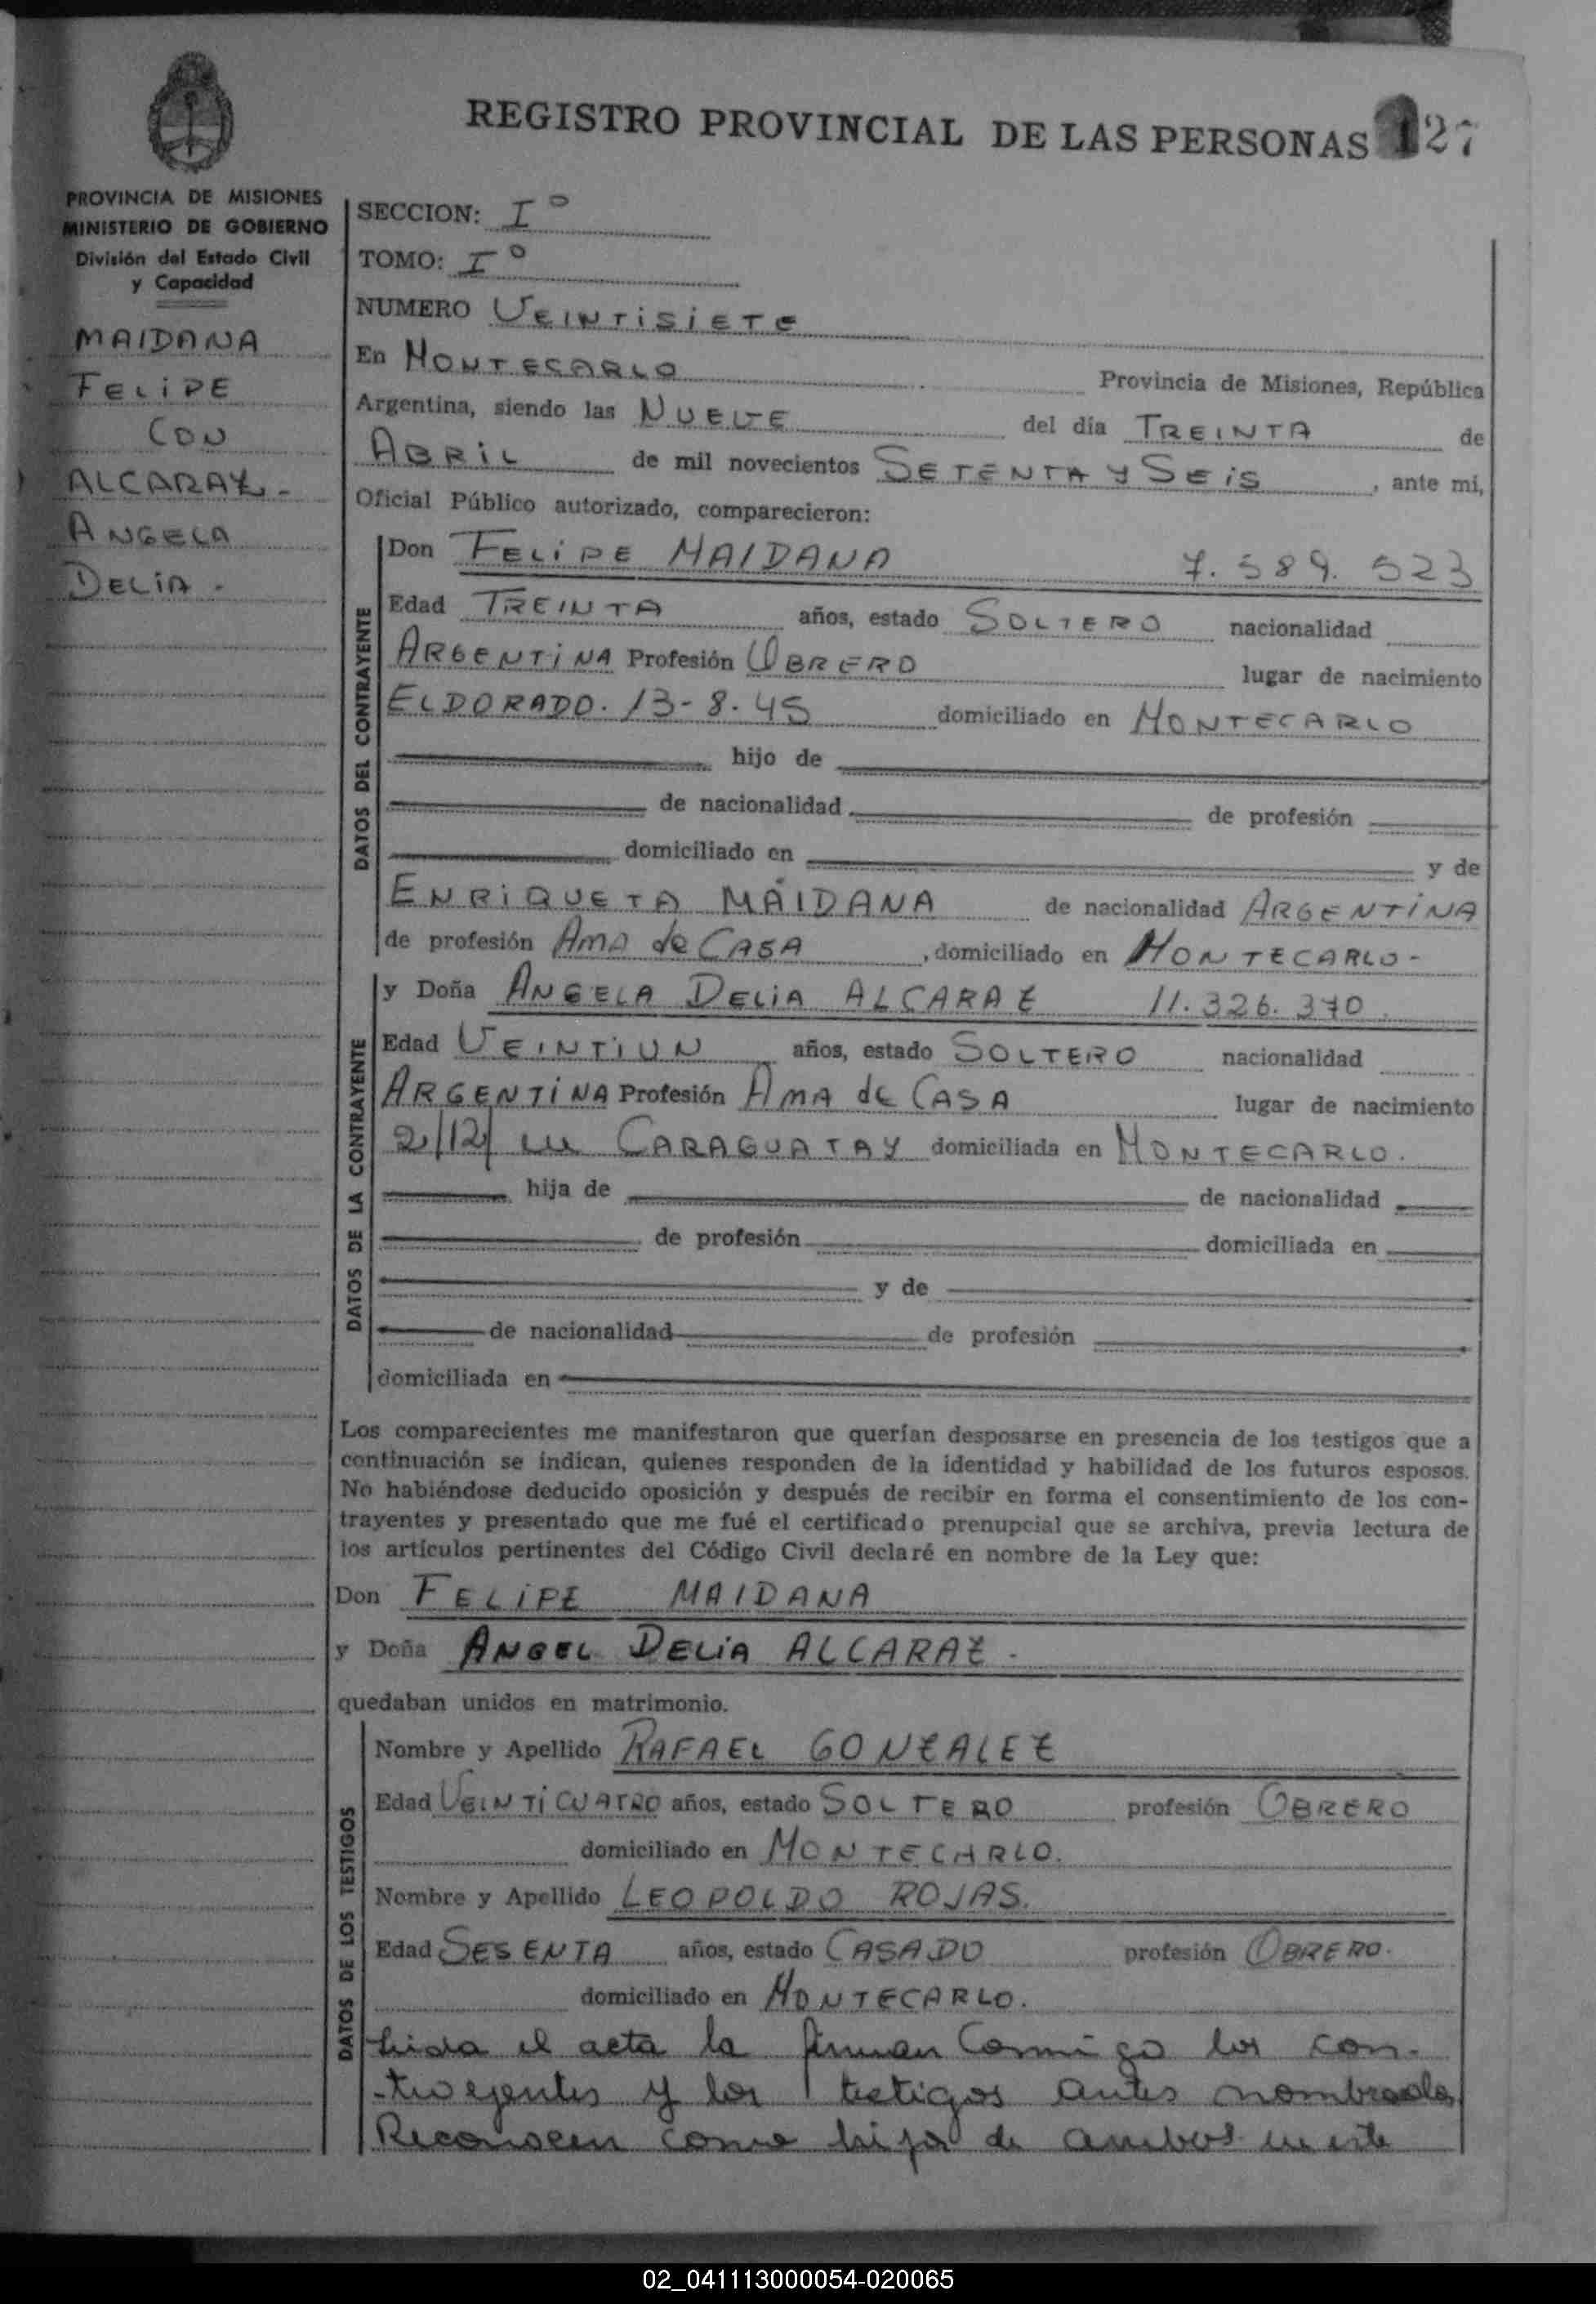 REGISTRO PROVINCIAL DE LAS PERSONAS 127
PROVINCIA DE MISIONES
MINISTERIO DE GOBIERNO
División del Estado Civil
y Capacidad
MAIDANA
FELIPE
CON
ALCARAZ -
ANGELA
DELIA -
SECCION: I°
TOMO: I°
NUMERO VEINTISIETE
En MONTECARLO Provincia de Misiones, República
Argentina, siendo las NUEVE del día TREINTA de
ABRIL de mil novecientos SETENTA Y SEIS, ante mi,
Oficial Público autorizado, comparecieron:
DATOS DEL CONTRAYENTE
Don FELIPE MAIDANA 7.589.523
Edad TREINTA años, estado SOLTERO nacionalidad
ARGENTINA Profesión OBRERO lugar de nacimiento
ELDORADO. 13-8-45 domiciliado en MONTECARLO
hijo de
de nacionalidad de profesión
domiciliado en y de
ENRIQUETA MAIDANA de nacionalidad ARGENTINA
de profesión AMA de CASA, domiciliado en MONTECARLO-
DATOS DE LA CONTRAYENTE
y Doña ANGELA DELIA ALCARAZ 11.326.370
Edad VEINTIUN años, estado SOLTERO nacionalidad
ARGENTINA Profesión AMA de CASA lugar de nacimiento
2/12/ en CARAGUATAY domiciliada en MONTECARLO.
hija de de nacionalidad
de profesión domiciliada en
y de
de nacionalidad de profesión
domiciliada en
Los comparecientes me manifestaron que querían desposarse en presencia de los testigos que a
continuación se indican, quienes responden de la identidad y habilidad de los futuros esposos.
No habiéndose deducido oposición y después de recibir en forma el consentimiento de los con-
trayentes y presentado que me fué el certificado prenupcial que se archiva, previa lectura de
los artículos pertinentes del Código Civil declaré en nombre de la Ley que:
Don FELIPE MAIDANA
y Doña ANGEL DELIA ALCARAZ -
quedaban unidos en matrimonio.
DATOS DE LOS TESTIGOS
Nombre y Apellido RAFAEL GONZALEZ
Edad VEINTICUATRO años, estado SOLTERO profesión OBRERO
domiciliado en MONTECARLO.
Nombre y Apellido LEOPOLDO ROJAS.
Edad SESENTA años, estado CASADO profesión OBRERO.
domiciliado en MONTECARLO.
Leida el acta la firman Conmigo los con-
trayentes y los testigos antes nombrados
Reconocen como hijo de ambos en este
02_041113000054-020065